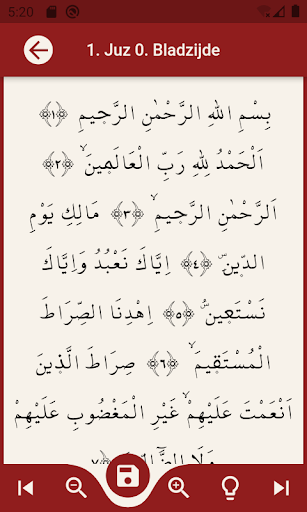 5:20
1. Juz 0. Bladzijde
بِسْمِ اللهِ الرَّحْمٰنِ الرَّحِيمِ ﴿١﴾
اَلْحَمْدُ لِلّٰهِ رَبِّ الْعَالَمِينَۙ ﴿٢﴾
اَلرَّحْمٰنِ الرَّحِيمِۙ ﴿٣﴾ مَالِكِ يَوْمِ
الدِّينِۜ ﴿٤﴾ اِيَّاكَ نَعْبُدُ وَاِيَّاكَ
نَسْتَعِينُۜ ﴿٥﴾ اِهْدِنَا الصِّرَاطَ
الْمُسْتَقِيمَۙ ﴿٦﴾ صِرَاطَ الَّذِينَ
اَنْعَمْتَ عَلَيْهِمْۙ غَيْرِ الْمَغْضُوبِ عَلَيْهِمْ
وَلَا